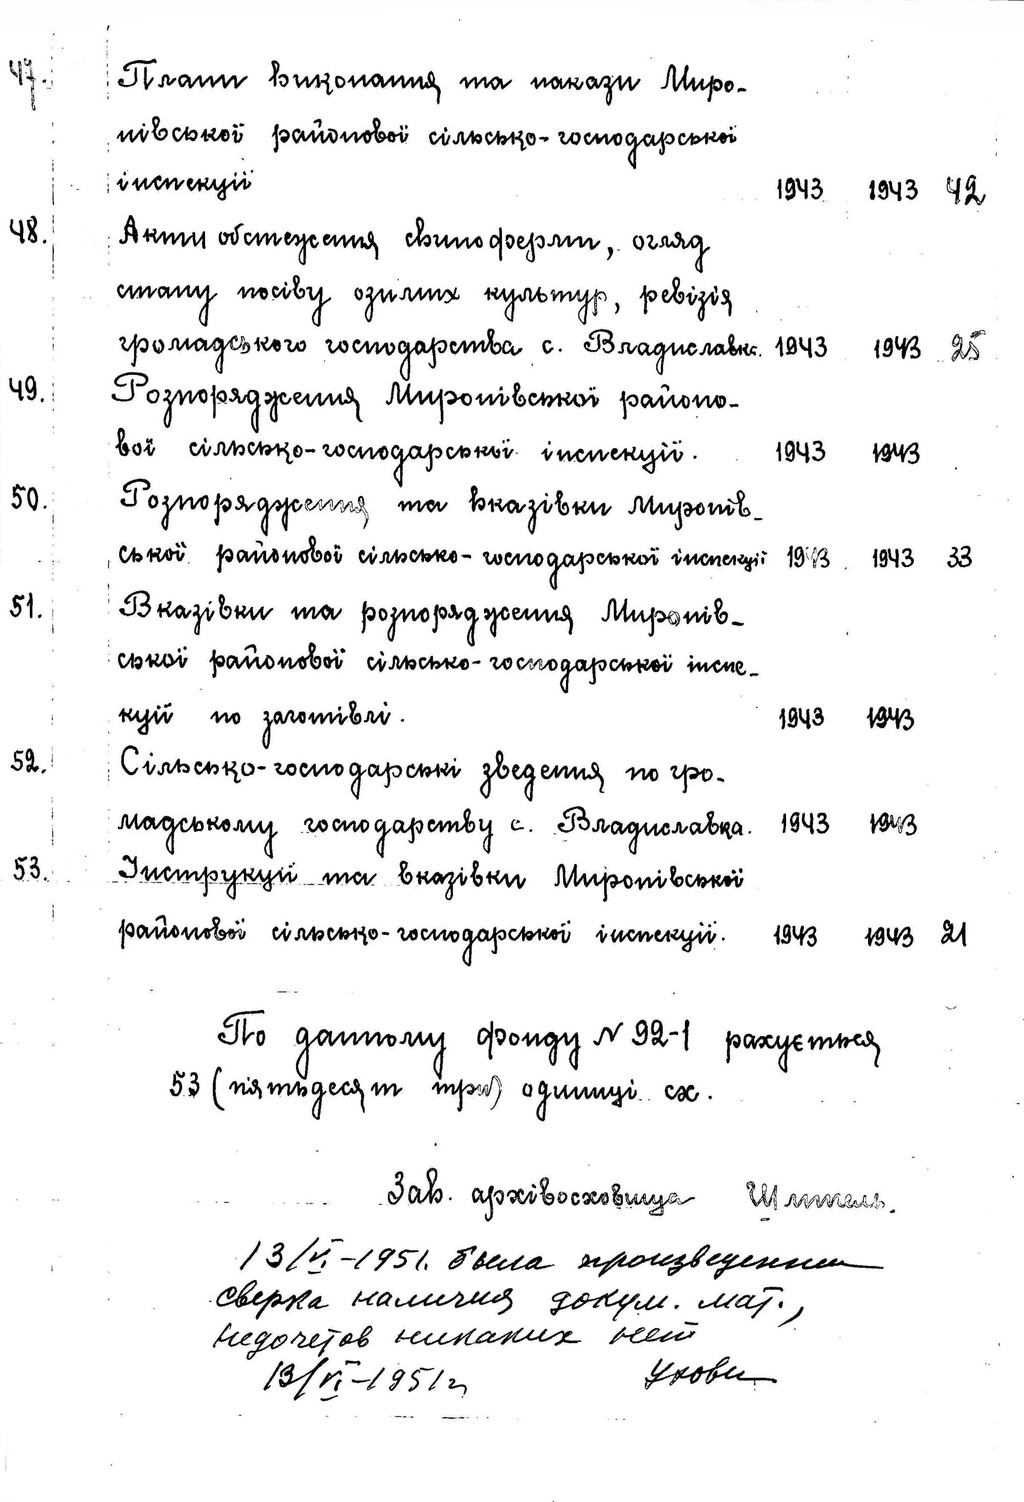 47. Плани виконання та накази Миро-
нівської районової сільсько-господарської
інспекції 1943 1943 42
48. Акти обстеження свиноферми, огляд
стану посіву озимих культур, ревізія
громадського господарства с. Владиславка. 1943 1943 25
49. Розпорядження Миронівської районо-
вої сільсько-господарської інспекції. 1943 1943
50. Розпорядження та вказівки Миронів-
ської районової сільсько-господарської інспекції 1943 1943 33
51. Вказівки та розпорядження Миронів-
ської районової сільсько-господарської інспе-
кції по заготівлі. 1943 1943
52. Сільсько-господарські зведення по гро-
мадському господарству с. Владиславка. 1943 1943
53. Інструкції та вказівки Миронівської
районової сільсько-господарської інспекції. 1943 1943 21
По данному фонду N 92-1 рахується
53 (пятьдесят три) одиниці сх.
Зав. архівосховища
13/VI-1951. была произведенна
сверка наличия докум. мат.,
недочетов никаких нет
13/VI-1951г